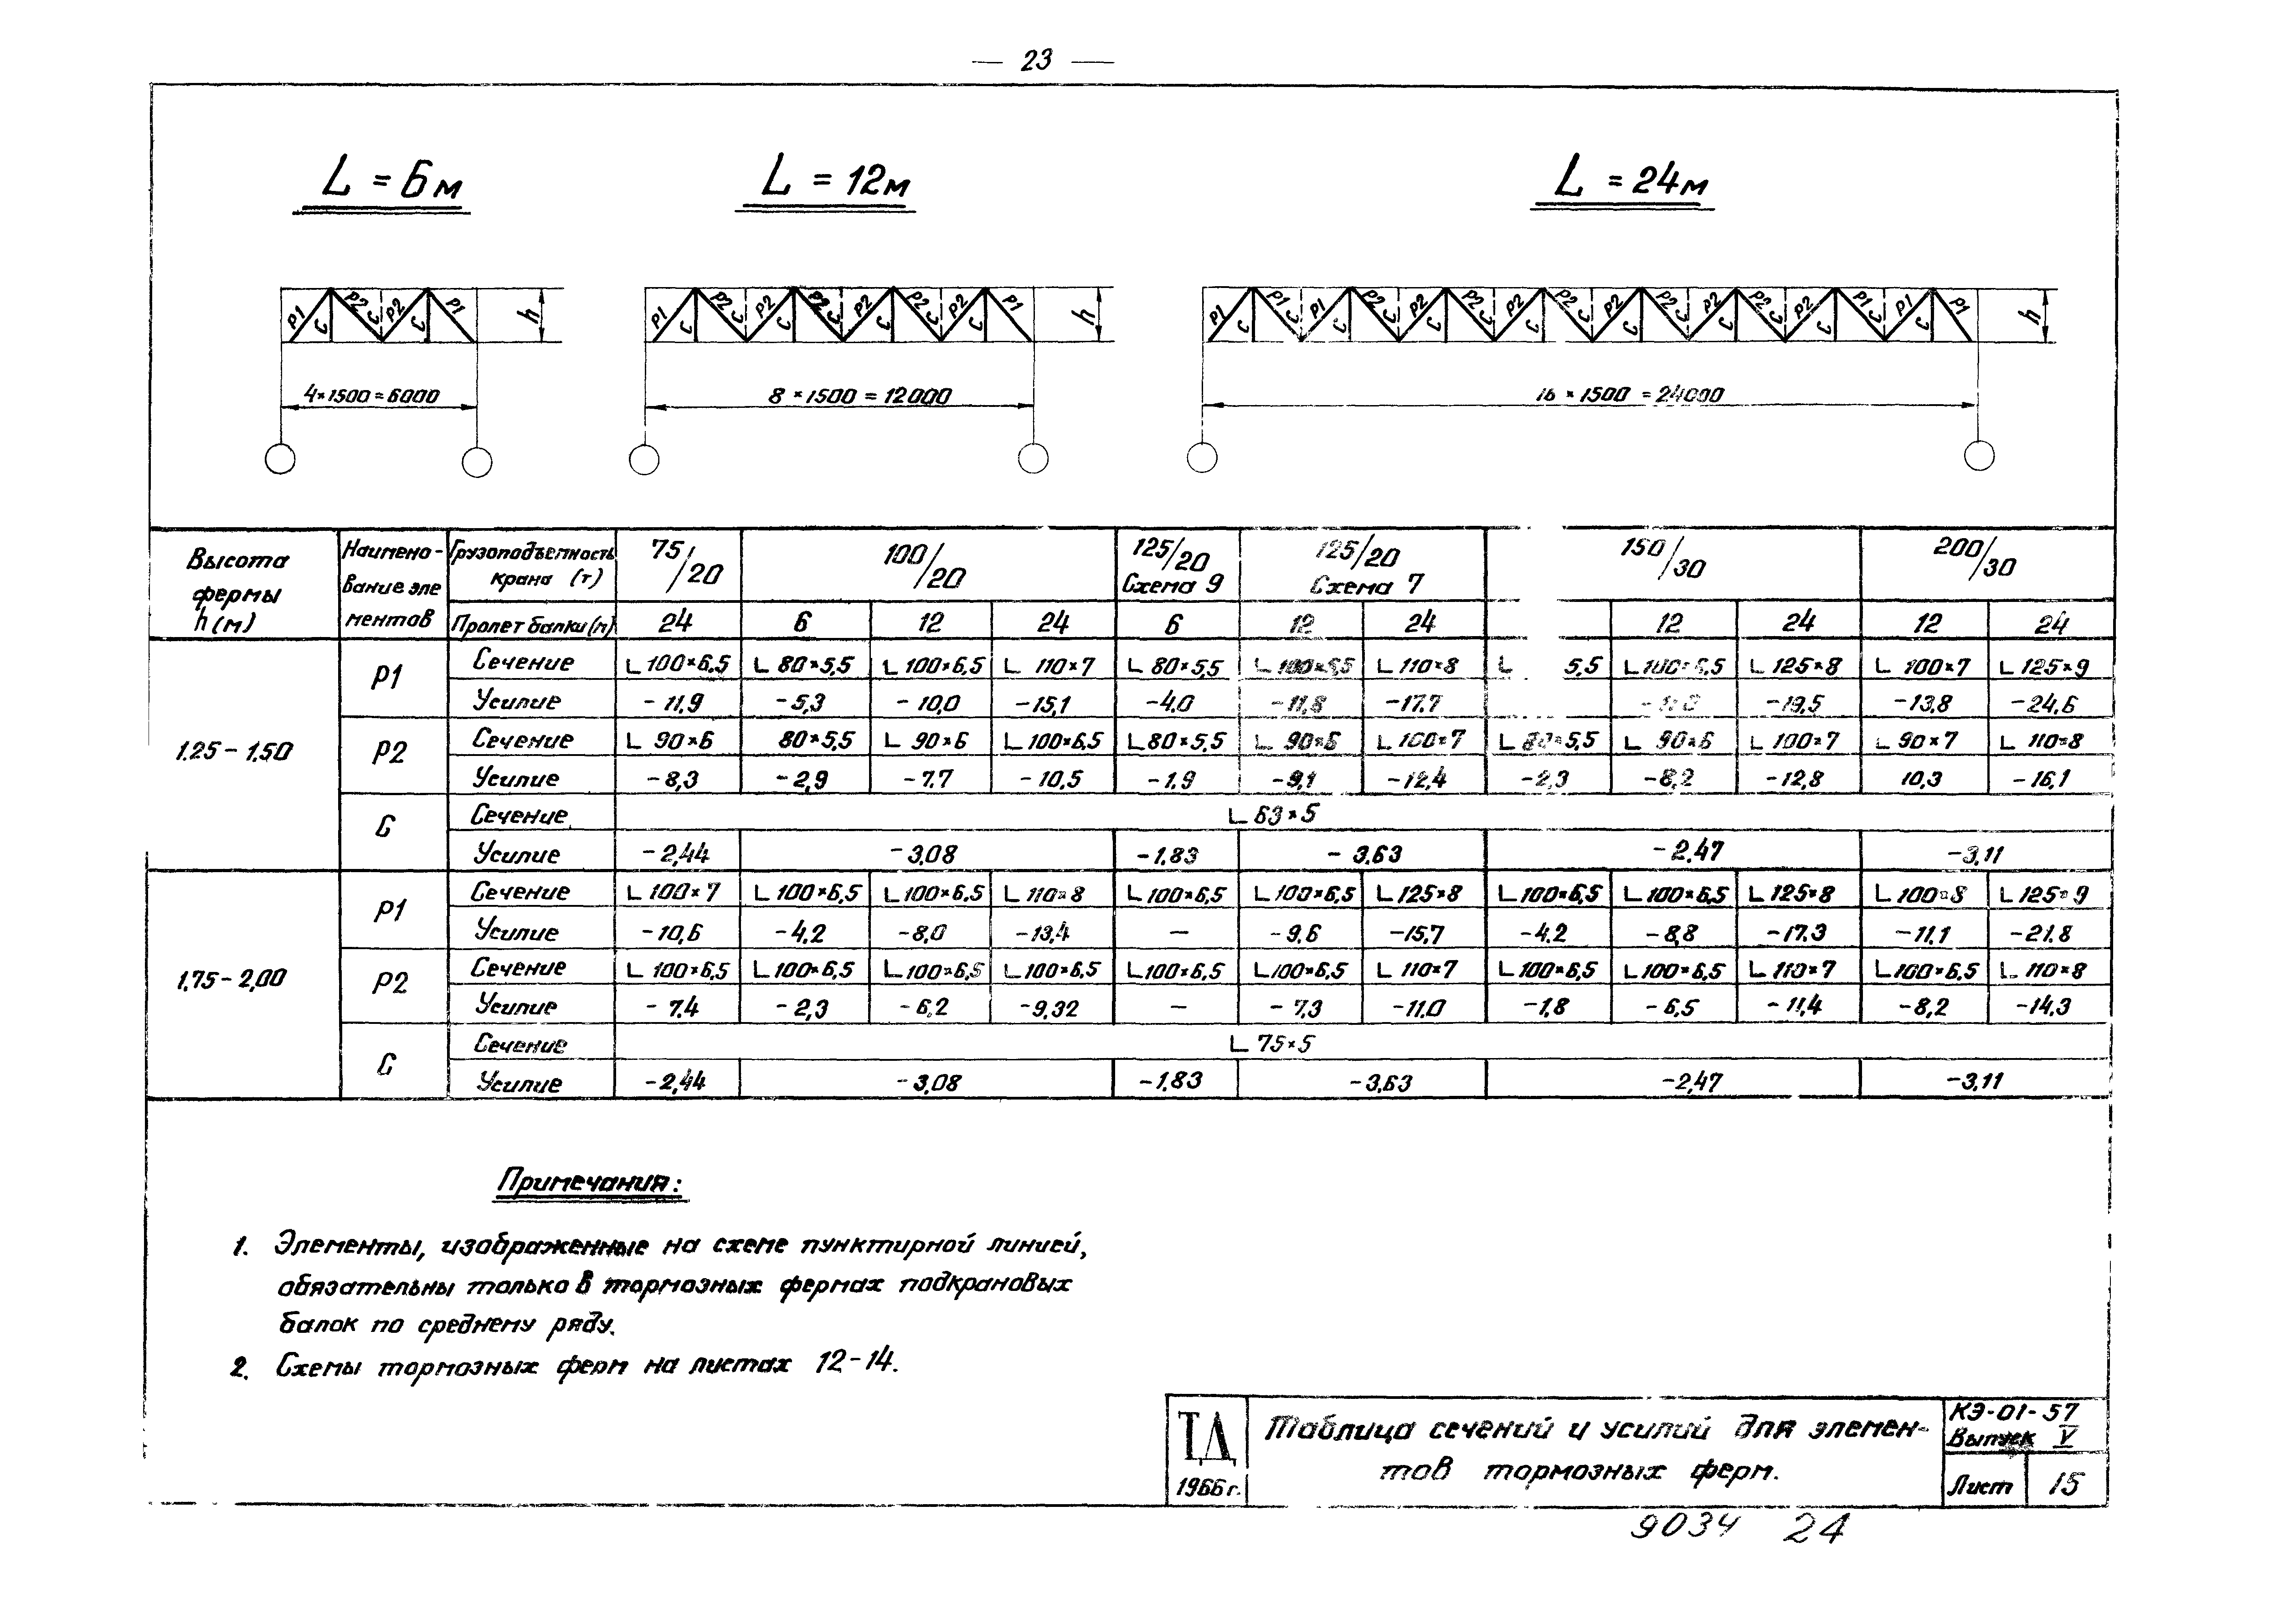 — 23 —
L = 6м
L = 12м
L = 24м
P1 C P2 C P2 C P1 h
P1 C P2 C P2 C P2 C P2 C P2 C P2 C P1 h
P1 C P1 C P1 C P2 C P2 C P2 C P2 C P2 C P2 C P2 C P2 C P2 C P2 C P1 C P1 C P1 h
4×1500=6000
8×1500=12000
16×1500=24000
Высота фермы h(м)
Наимено-вание эле ментов
Грузоподъемность крана (т)
75/20
100/20
125/20 Схема 9
125/20 Схема 7
150/30
200/30
Пролет балки(м) 24 6 12 24 6 12 24 12 24 12 24
1.25-1.50
P1
Сечение L100×6.5 L80×5,5 L100×6,5 L110×7 L80×5,5 L100×6,5 L110×8 L 5,5 L100×6,5 L125×8 L100×7 L125×9
Усилие -11.9 -5,3 -10,0 -15,1 -4.0 -11,8 -17.7 -19,5 -13,8 -24,6
P2
Сечение L90×6 80×5,5 L90×6 L100×6,5 L80×5,5 L90×6 L100×7 L80×5,5 L90×6 L100×7 L90×7 L110×8
Усилие -8,3 -2,9 -7.7 -10,5 -1.9 -9,1 -12,4 -2,3 -8,2 -12,8 10,3 -16,1
C
Сечение L63×5
Усилие -2,44 -3,08 -1.83 -3,63 -2,47 -3,11
1,75-2,00
P1
Сечение L100×7 L100×6,5 L100×6,5 L110×8 L100×6,5 L100×6,5 L125×8 L100×6,5 L100×6,5 L125×8 L100×8 L125×9
Усилие -10,6 -4.2 -8,0 -13,4 — -9.6 -15,7 -4.2 -8,8 -17.3 -11,1 -21.8
P2
Сечение L100×6,5 L100×6,5 L100×6,5 L100×6,5 L100×6,5 L100×6,5 L110×7 L100×6,5 L100×6,5 L110×7 L100×6,5 L110×8
Усилие -7.4 -2,3 -6,2 -9,32 — -7,3 -11,0 -1,8 -6,5 -11,4 -8,2 -14,3
C
Сечение L75×5
Усилие -2,44 -3,08 -1.83 -3,63 -2,47 -3,11
Примечания:
1. Элементы, изображенные на схеме пунктирной линией,
обязательны только в тормозных фермах подкрановых
балок по среднему ряду.
2. Схемы тормозных ферм на листах 12-14.
ТД
1966г.
Таблица сечений и усилий для элемен-
тов тормозных ферм.
КЭ-01-57
Выпуск V
Лист 15
9034 24